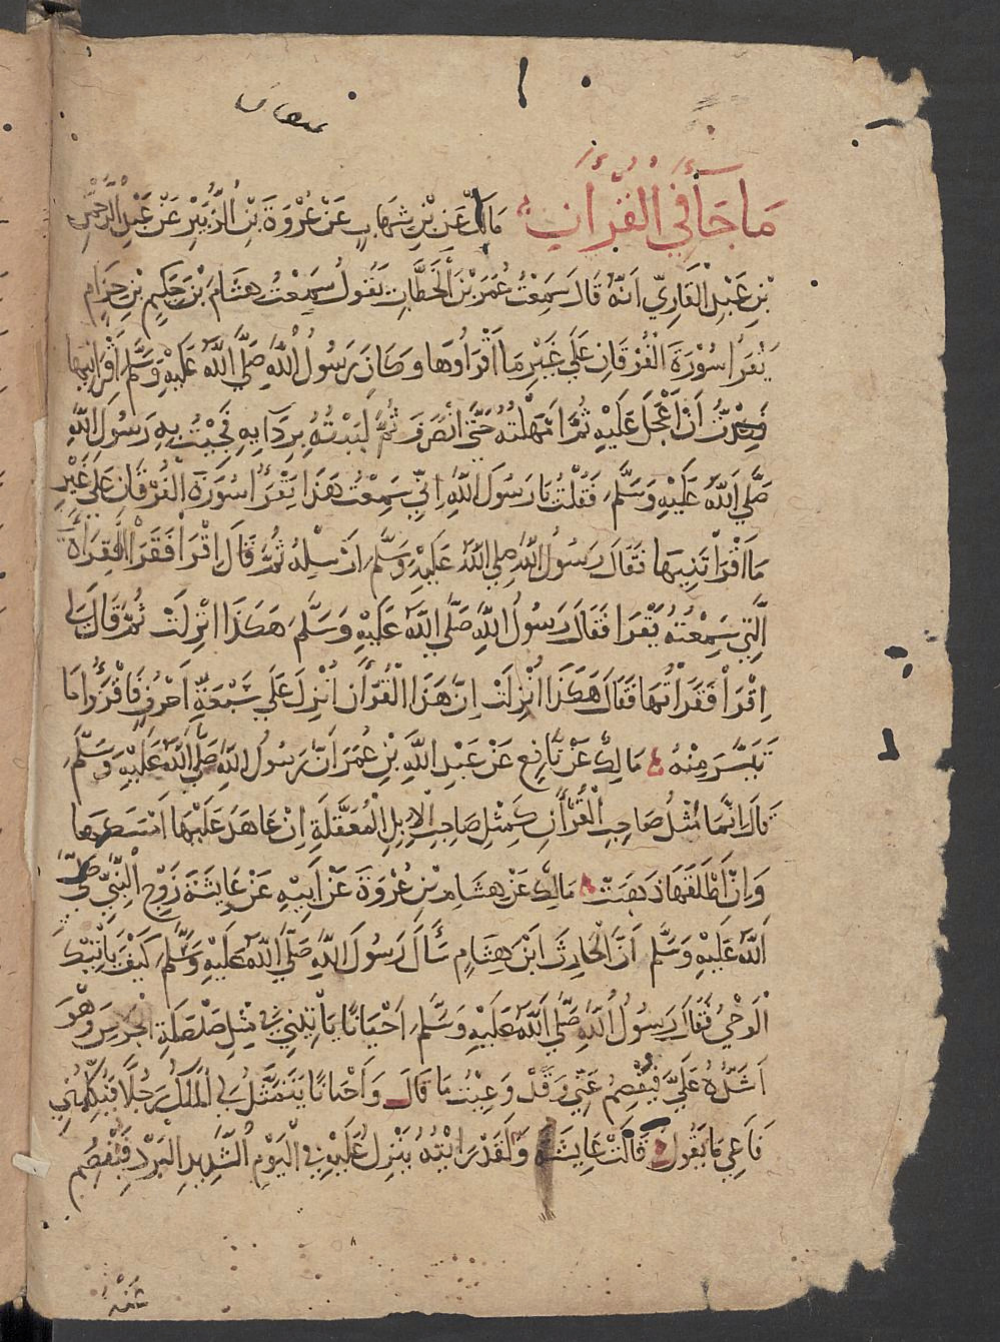 ما جا في القرآن مالك عن بن شهاب عن عروة بن الزبير عن عبد الرحمن
بن عبد القاري انه قال سمعت عمر بن الخطاب يقول سمعت هشام بن حكيم بن حزام
يقرا سورة الفرقان على غير ما اقراوها وكان رسول الله صلى الله عليه وسلم اقرانيها
فكدت ان اعجل عليه ثم امهلته حتى انصرف ثم لببته بردايه فجيت به رسول الله
صلى الله عليه وسلم فقلت يا رسول الله اني سمعت هذا يقرا سورة الفرقان على غير
ما اقراتنيها فقال رسول الله صلى الله عليه وسلم ارسله ثم قال اقرا فقرا القراة
التي سمعته يقرا فقال رسول الله صلى الله عليه وسلم هكذا انزلت ثم قال لي
اقرا فقراتها فقال هكذا انزلت ان هذا القرآن انزل على سبعة احرف فاقرؤا ما
تيسر منه مالك عن نافع عن عبد الله بن عمر ان رسول الله صلى الله عليه وسلم
قال انما مثل صاحب القرآن كمثل صاحب الابل المعقلة ان عاهد عليها امسكها
وان اطلقها ذهبت مالك عن هشام بن عروة عن ابيه عن عايشة زوج النبي صلى
الله عليه وسلم ان الحارث ابن هشام سأل رسول الله صلى الله عليه وسلم كيف ياتيك
الوحي فقال رسول الله صلى الله عليه وسلم احيانا يأتيني في مثل صلصلة الجرس وهو
اشده علي فيفصم عني وقد وعيت ما قال واحيانا يتمثل لي الملك رجلا فيكلمني
فاعي ما يقول قالت عايشة ولقد رايته ينزل عليه في اليوم الشديد البرد فيفصم
عنه